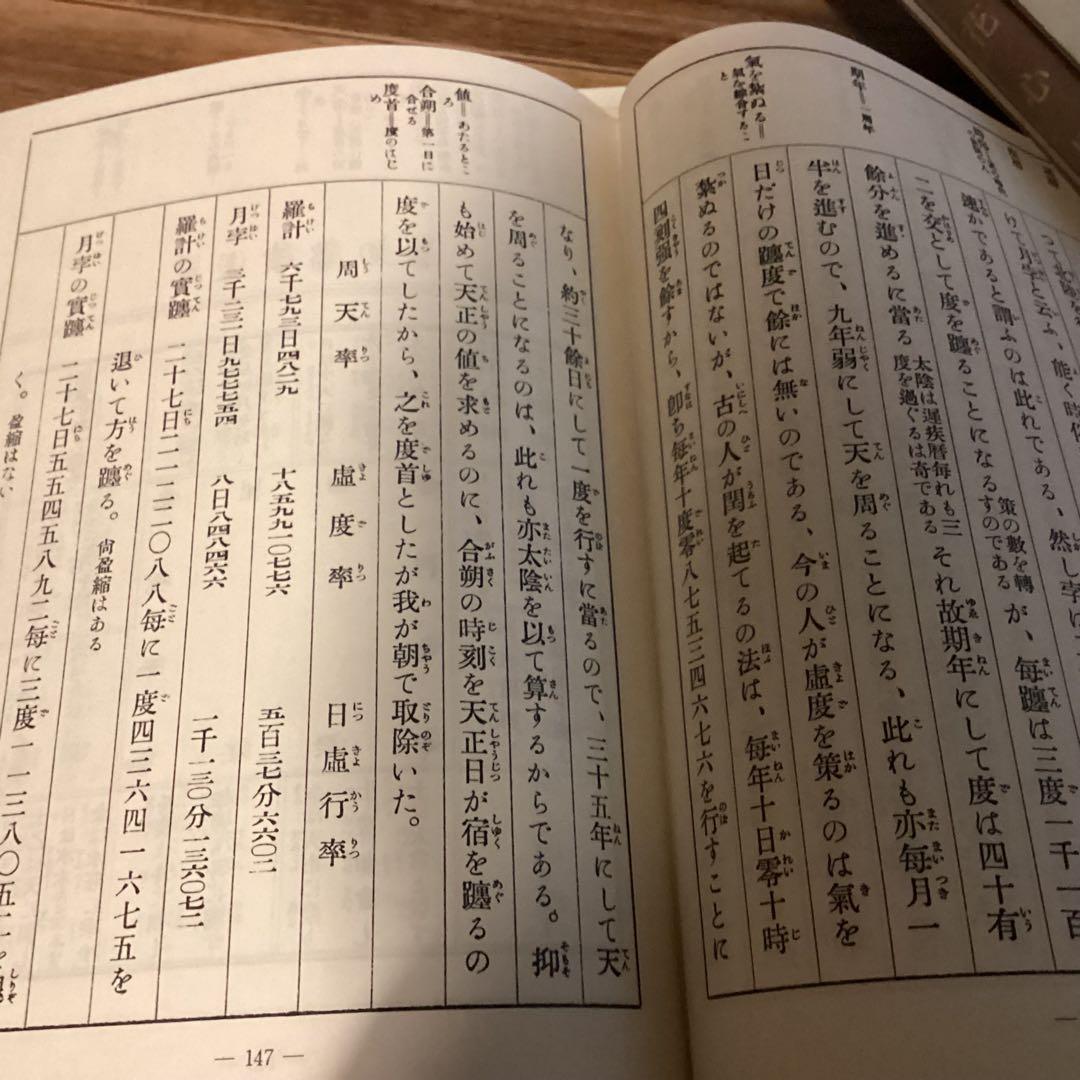 期年――一周年
氣を紮ぬる――
氣を綜合するこ
と
って
りて月孛と云ふ、能く時
速かであると謂ふのは此れである、然し孛は
策の數を轉
二を交として度を躔ることになるすのである
が、毎躔は三度一千一百
餘分を進めるに當る
太陰は遲疾曆毎れも三
度を過ぐるは奇である
それ故期年にして度は四十有
半を進むので、九年弱にして天を周ることになる、此れも亦毎月一
日だけの躔度で餘には無いのである、今の人が虛度を策るのは氣を
紮ぬるのではないが、古の人が閏を起てるの法は、毎年十日零十時
四刻强を餘すから、卽ち毎年十度零八七五三四六七六を行すことに
値――あたるとこ
ろ
合朔――第一日に
合せる
度首――度のはじ
め
なり、約三十餘日にして一度を行すに當るので、三十五年にして天
を周ることになるのは、此れも亦太陰を以て算するからである。抑
も始めて天正の値を求めるのに、合朔の時刻を天正日が宿を躔るの
度を以てしたから、之を度首としたが我が朝で取除いた。
周天率 虛度率 日虛行率
羅計 六千七九三日四八二九 十八五九九一〇七七六 五百三七分六六〇二
月孛 三千二三一日九七七七五四 八日八四八四六六 一千一三〇分一三六〇七二
羅計の實躔 二十七日二一二二〇八八毎に一度四三六四一六七五を
退いて方を躔る。尙盈縮はある
月孛の實躔 二十七日五五四五八九二毎に三度一一三八〇五二
く。盈縮はない
― 147 ―